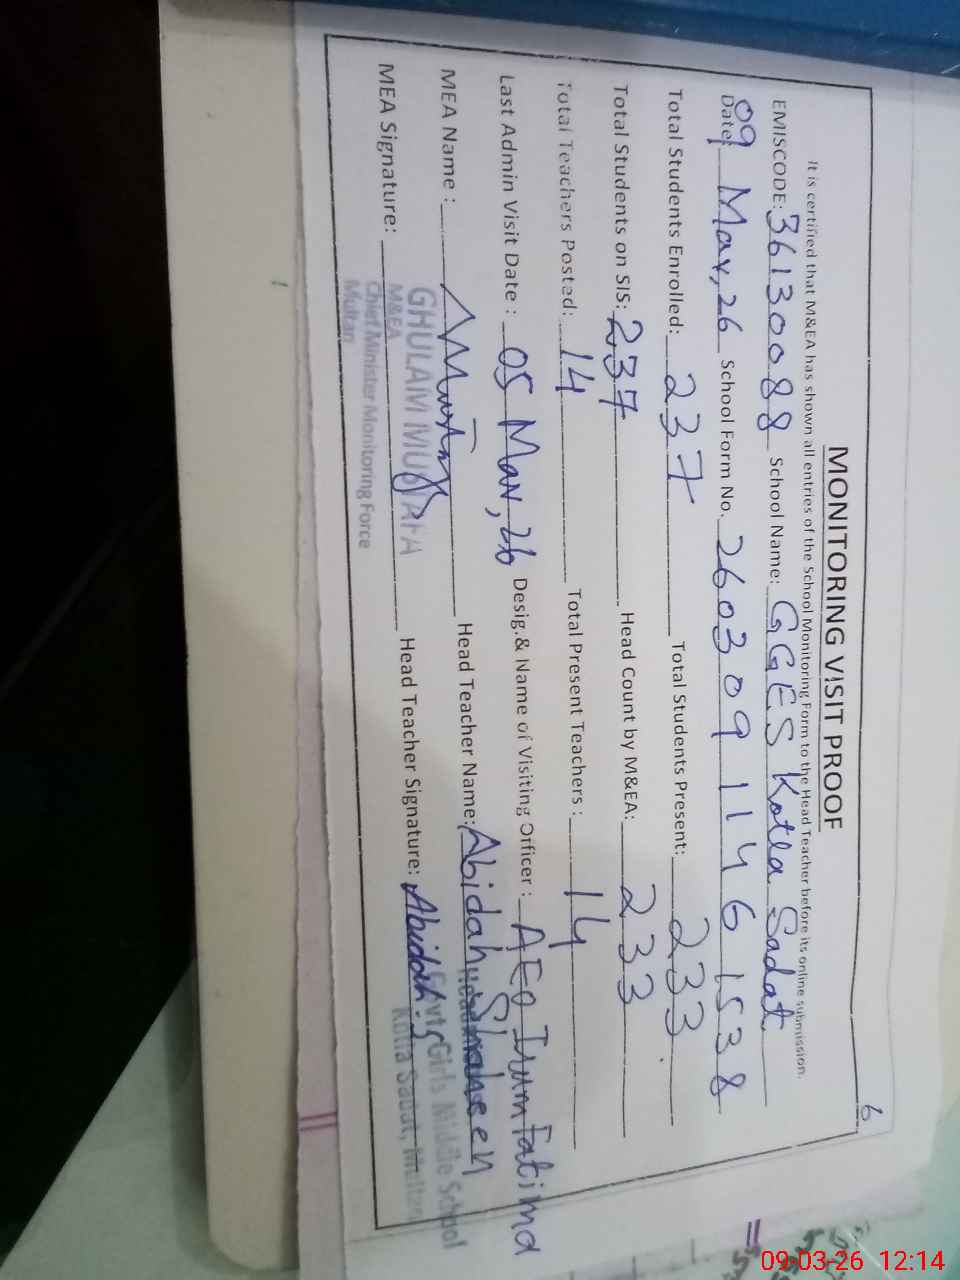 6
MONITORING VISIT PROOF
It is certified that M&EA has shown all entries of the School Monitoring Form to the Head Teacher before its online submission.
EMISCODE: 36130088 School Name: GGES Kotla Sadat
Date: 09 Mar, 26 School Form No. 2603091146 1538
Total Students Enrolled: 237 Total Students Present: 233
Total Students on SIS: 237 Head Count by M&EA: 233
Total Teachers Posted: 14 Total Present Teachers : 14
Last Admin Visit Date : 05 Mar, 26 Desig.& Name of Visiting Officer : AEO Irum Fatima
MEA Name : Head Teacher Name: Abidah Shaheen
MEA Signature: Head Teacher Signature: Abidah
GHULAM MUSTAFA
M&EA
Chief Minister Monitoring Force
Multan
Govt. Girls Middle School
Kotla Sadat, Multan
09-03-26 12:14